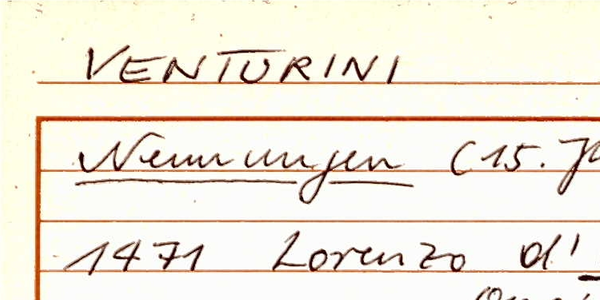 VENTURINI
Nennungen (15. J
1471 Lorenzo d'